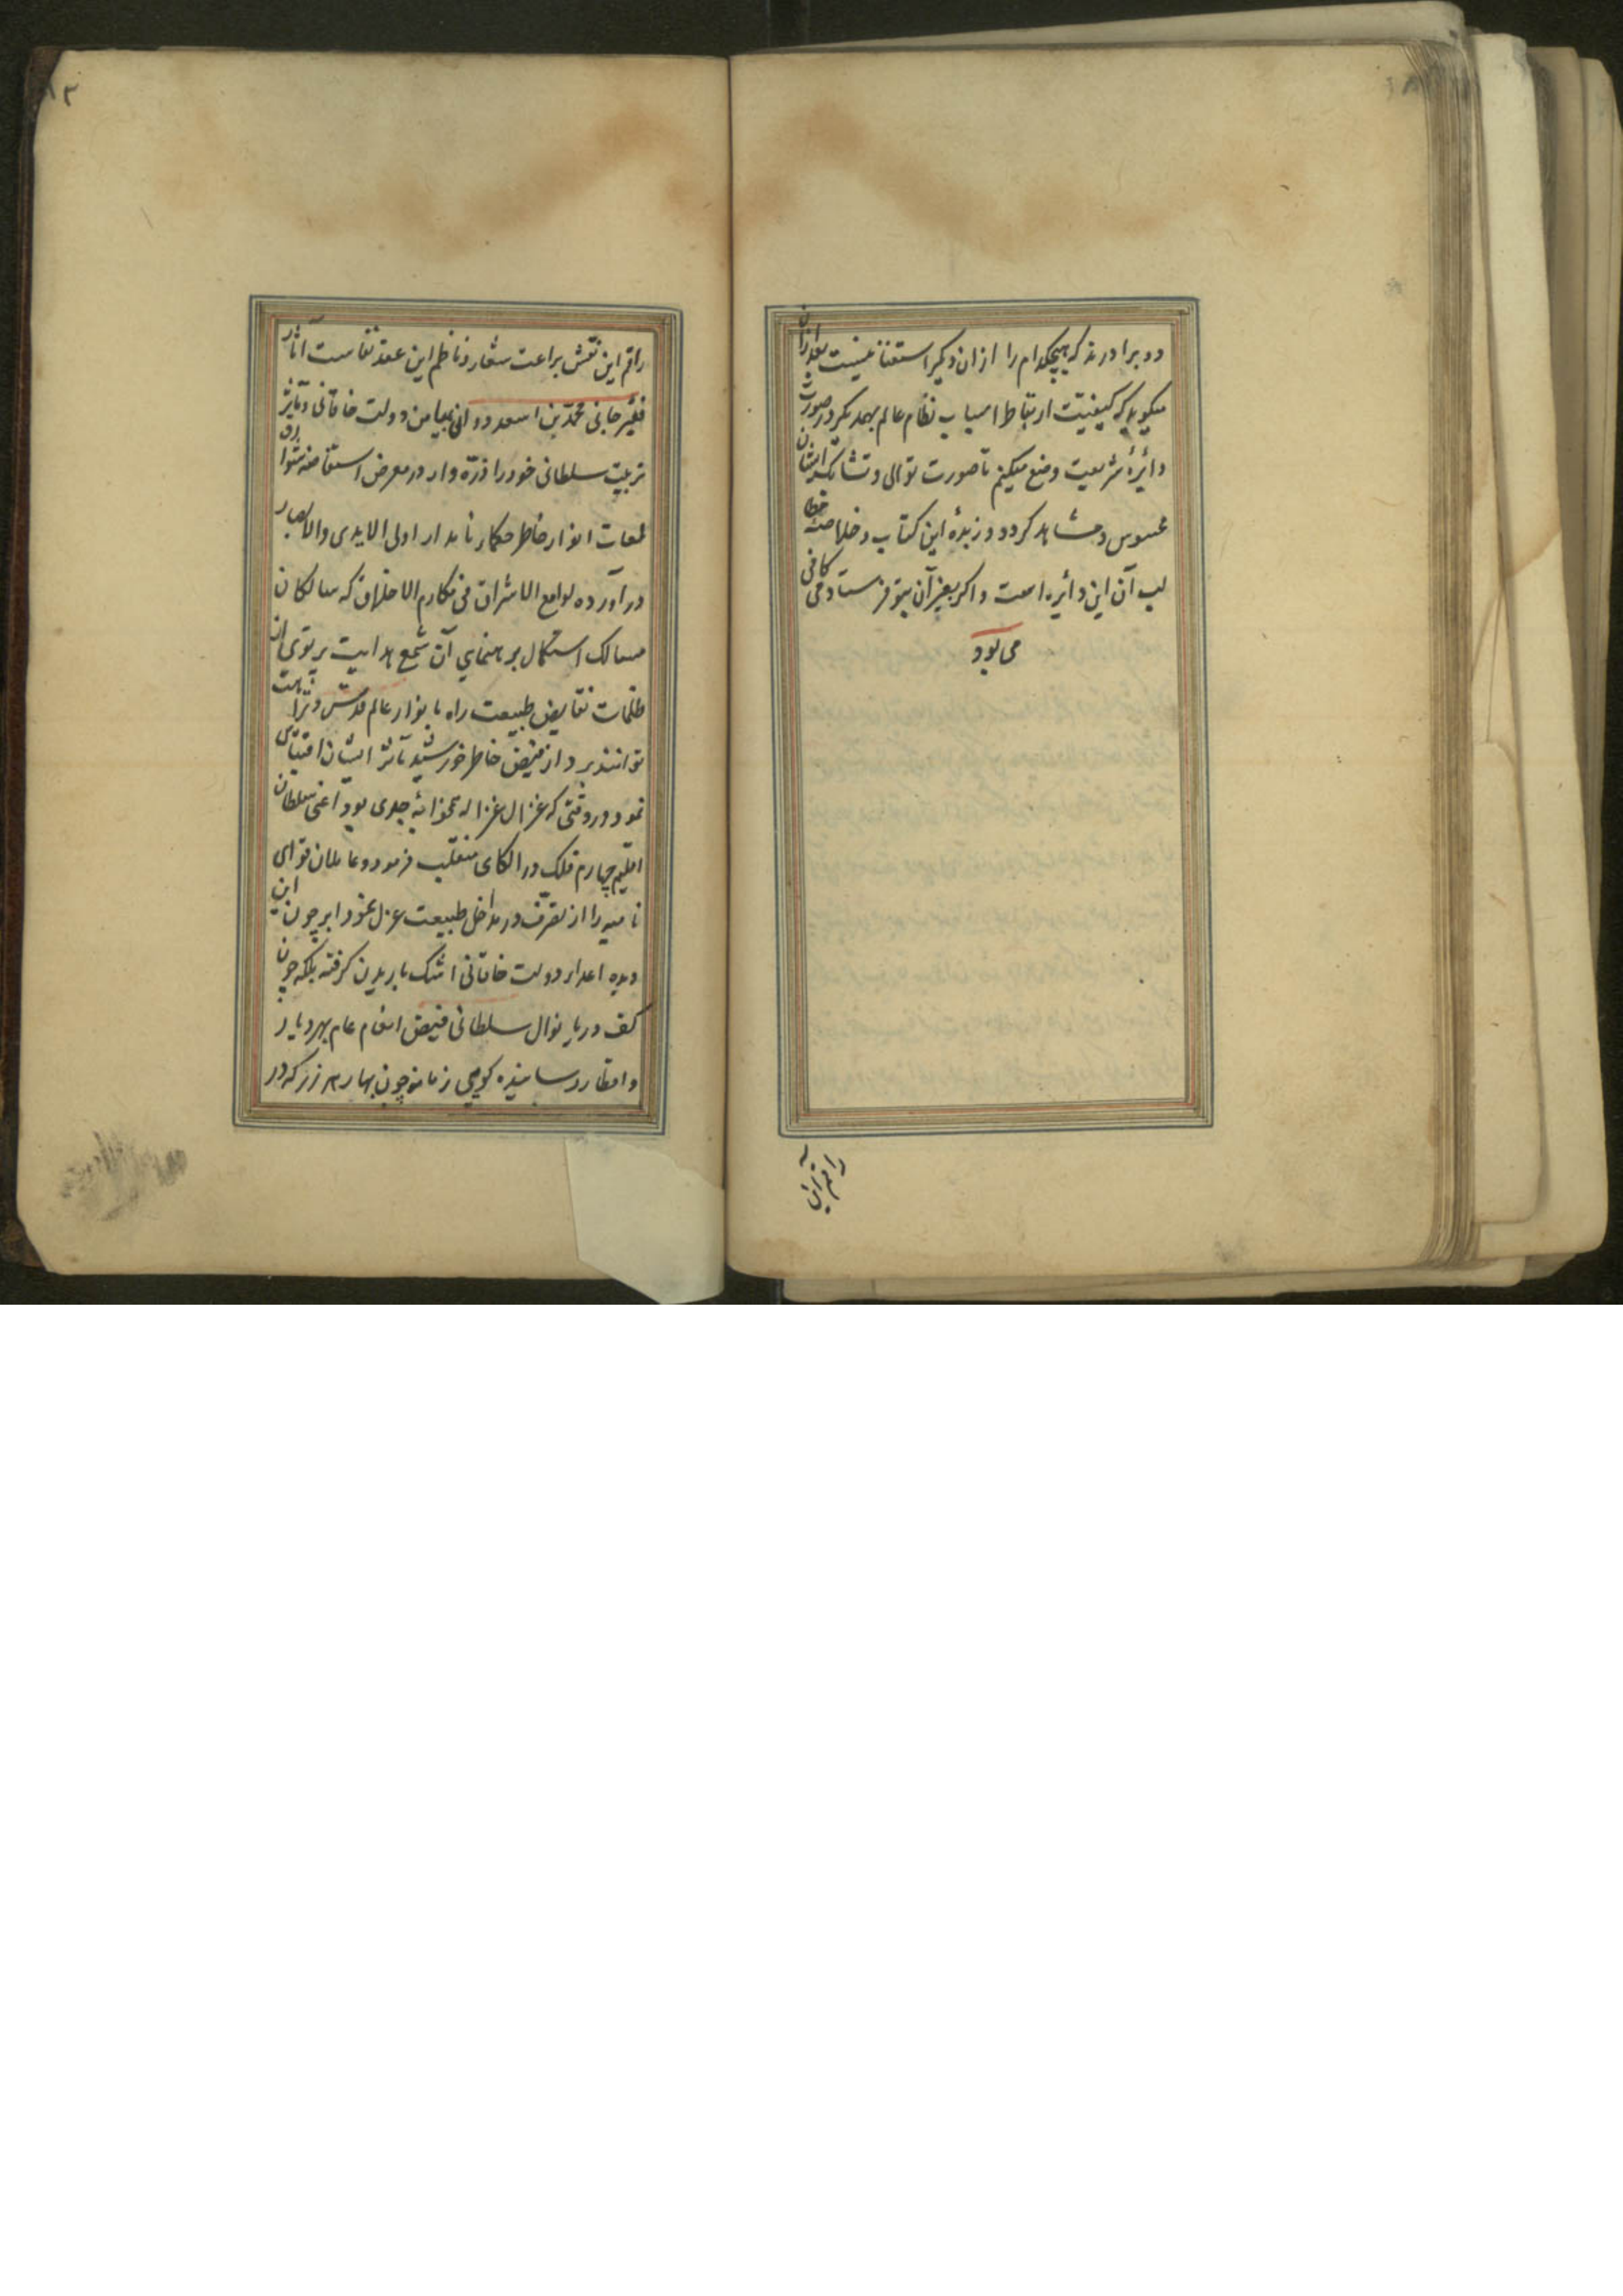 دو برادرند که هیچکدام را از ان دیگر استغنا نیست بعد ازان
میکوید که کیفیت ارتباط اسباب نظام عالم بهمدیکر در صورت
دائرهٔ شریعت وضع میکنم تا صورت توالی و تشابک ایشان
محسوس و مشاهد کردد و زبدهٔ این کتاب و خلاصه
لب آن این دائره است و اکر بغیر آن بتو فرستادمی کافی
می بود
۱۲
راقم این نقش براعت شعار و ناظم این عقد نفاست آثار
فقیر جانی محمد بن اسعد دوانی بمیامن دولت خاقانی و تاثیر
تربیت سلطانی خود را ذره وار در معرض استفاضه شوارق
لمعات انوار خاطر حکماء نامدار اولی الایدی والابصار
در آورده لوامع الاشراق فی مکارم الاخلاق که سالکان
مسالک استکمال برهنمایی آن شمع هدایت پرتوی از
ظلمات نقایص طبیعت راه بانوار عالم قدس و نزاهت
توانند برد از فیض خاطر خورشید تاثر ایشان اقتباس
نمود در وقتی که غزال غزاله بجوانهٔ جدی بود اعنی سلطان
اقلیم چهارم فلک در الکای منقلب فرمود و عاملان قوای
نامیه را از تصرف در مداخل طبیعت عزل نمود ابر چون این
دیده اعداء دولت خاقانی اشک باریدن کرفته بلکه چون
کف دریا نوال سلطانی فیض انعام عام بهر دیار
و اقطار رسانیده کویی زمانه چون بهار زر که در